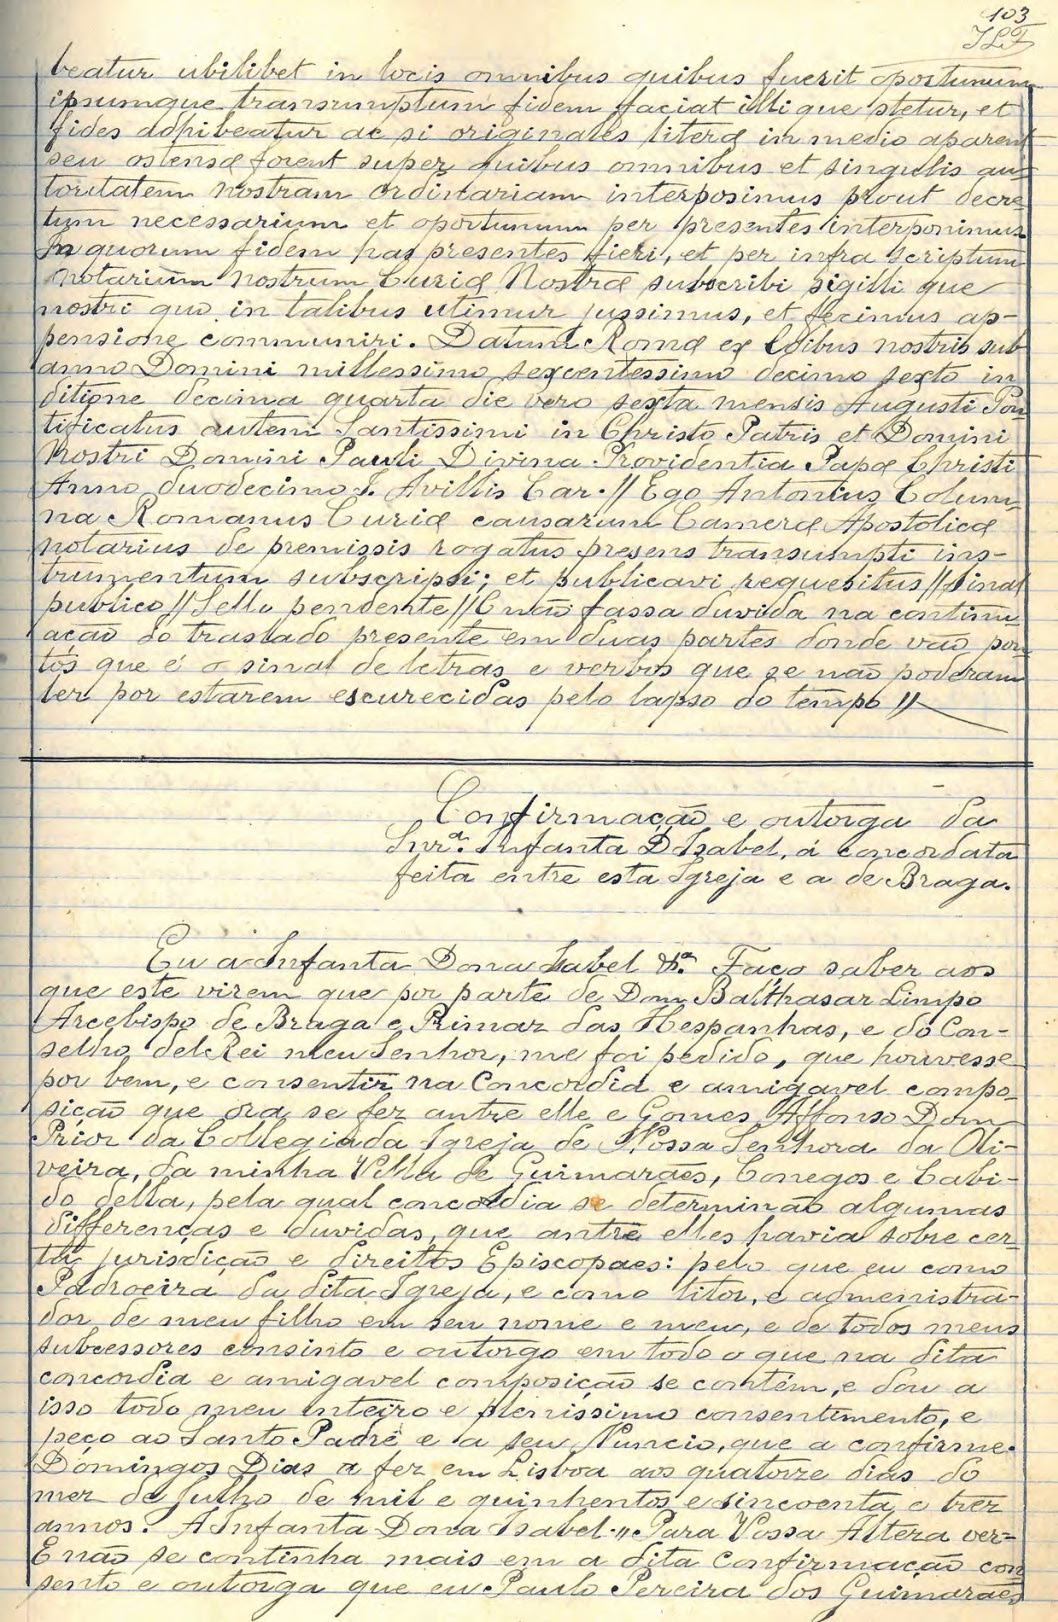 103
beatur ubilibet in locis omnibus quibus fuerit oportunum
ipsumque transumptum fidem faciat illi que stetur, et
fides adhibeatur ac si originales literæ in medio aparent
seu ostensæ forent super quibus omnibus et singulis au-
toritatem nostram ordinariam interposimus prout decre-
tum necessarium et oportunum per presentes interponimus
In quorum fidem has presentes fieri, et per infra scriptum
notarium nostrum Curiæ Nostræ subscribi sigilli que
nostri quo in talibus utimur jussimus, et fecimus ap-
pensione communiri. Datum Romæ ex Edibus nostris sub
anno Domini millessimo sexcentessimo decimo sexto in
ditione decima quarta die vero sexta mensis Augusti Pon
tificatus autem Santissimi in Christo Patris et Domini
Nostri Domini Pauli Divina Providentia Papæ Christi
Anno duodecimo J. Avillis Car. // Ego Antonius Colum-
na Romanus Curiæ causarum Cameræ Apostolicæ
notarius de premissis rogatus presens transumpti ins-
trumentum subscripsi; et publicavi requesitus // Sinal
publico // Sello pendente // E não fassa duvida na continu
ação do traslado presente em duas partes donde vão pon
tos que é o sinal de letras e verbos que se não poderam
ler por estarem escurecidas pelo lapso do tempo //
Confirmação e outorga da
Snrª. Infanta D Isabel, á concordata
feita entre esta Igreja e a de Braga.
Eu a Infanta Dona Isabel &ª. Faço saber aos
que este virem que por parte de Dom Balthasar Limpo
Arcebispo de Braga e Primaz das Hespanhas, e do Con-
selho delRei meu Senhor, me foi pedido, que houvesse
por bem, e consentir na Concordia e amigavel compo-
sição que ora se fez antre elle e Gomes Affonso Dom
Prior da Collegiada Igreja de Nossa Senhora da Oli-
veira, da minha Villa de Guimarães, Conegos e Cabi-
do della, pela qual concordia se determinão algumas
differenças e duvidas, que antre elles havia sobre cer-
ta jurisdição e direitos Episcopaes: pelo que eu como
Padroeira da dita Igreja, e como titor, e admenistra-
dor de meu filho em seu nome e meu, e de todos meus
subcessores consinto e outorgo em todo o que na dita
concordia e amigavel composição se contém, e dou a
isso todo meu inteiro e plenissimo consentimento, e
peço ao Santo Padre e a seu Nuncio, que a confirme.
Domingos Dias a fez em Lisboa aos quatorze dias do
mez de Julho de mil e quinhentos e sincoenta e trez
annos. A Infanta Dona Isabel. „ Para Vossa Alteza ver =
E não se continha mais em a dita Confirmação con
sento e outorga que eu Paulo Pereira dos Guimarães